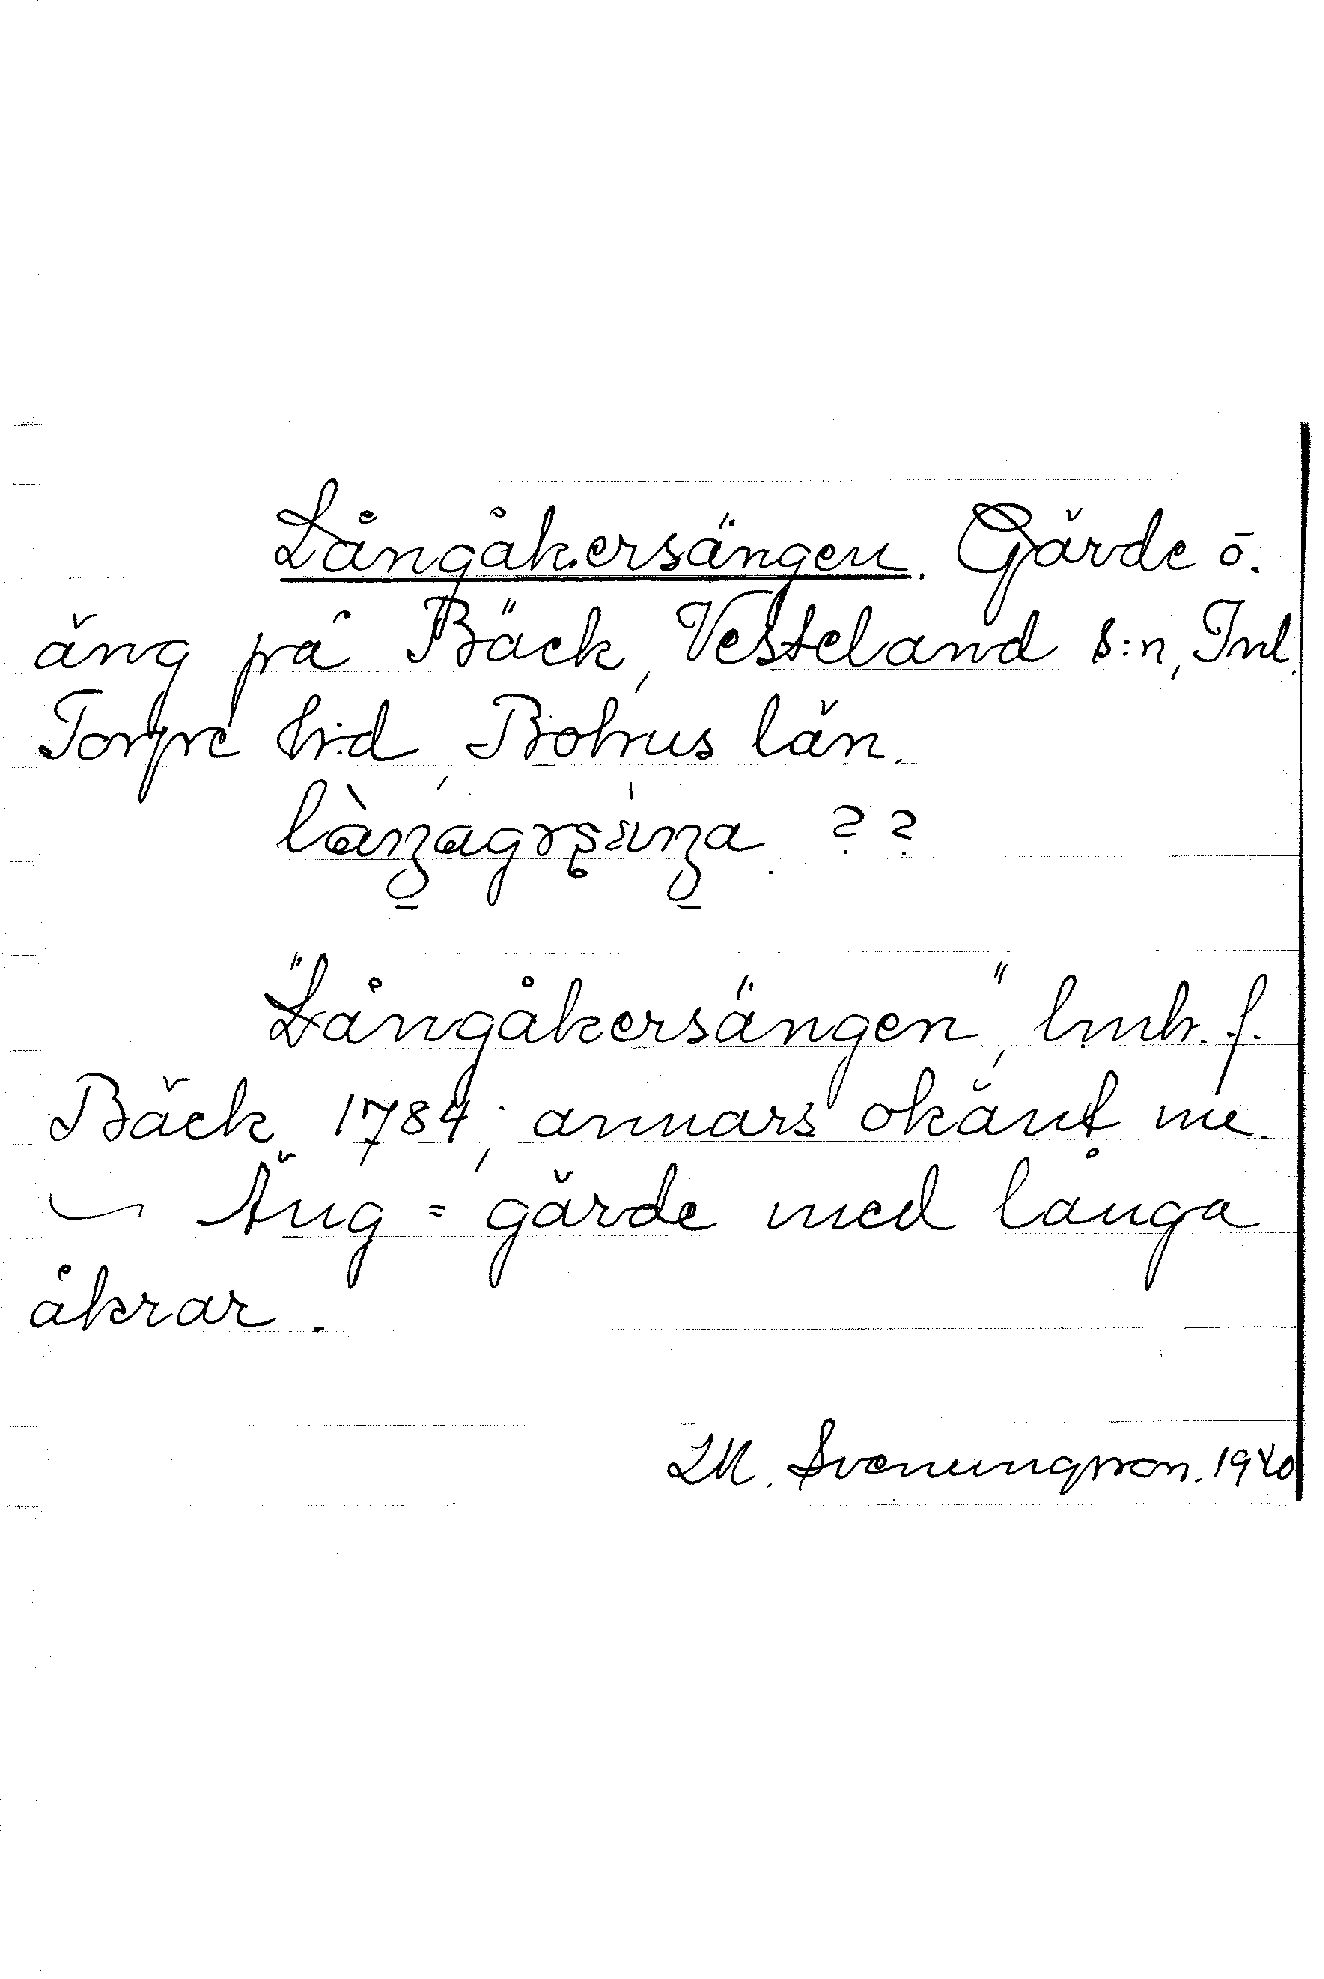 Långåkersängen. Gärde o.
äng på Bäck, Vesteland s:n, Inl.
Torpe h:d, Bohus län.
??
"Långåkersängen", lmh. f.
Bäck 1784; annars okänt nu.
Äng = gärde med långa
åkrar.
LM. Svenungsson. 1940